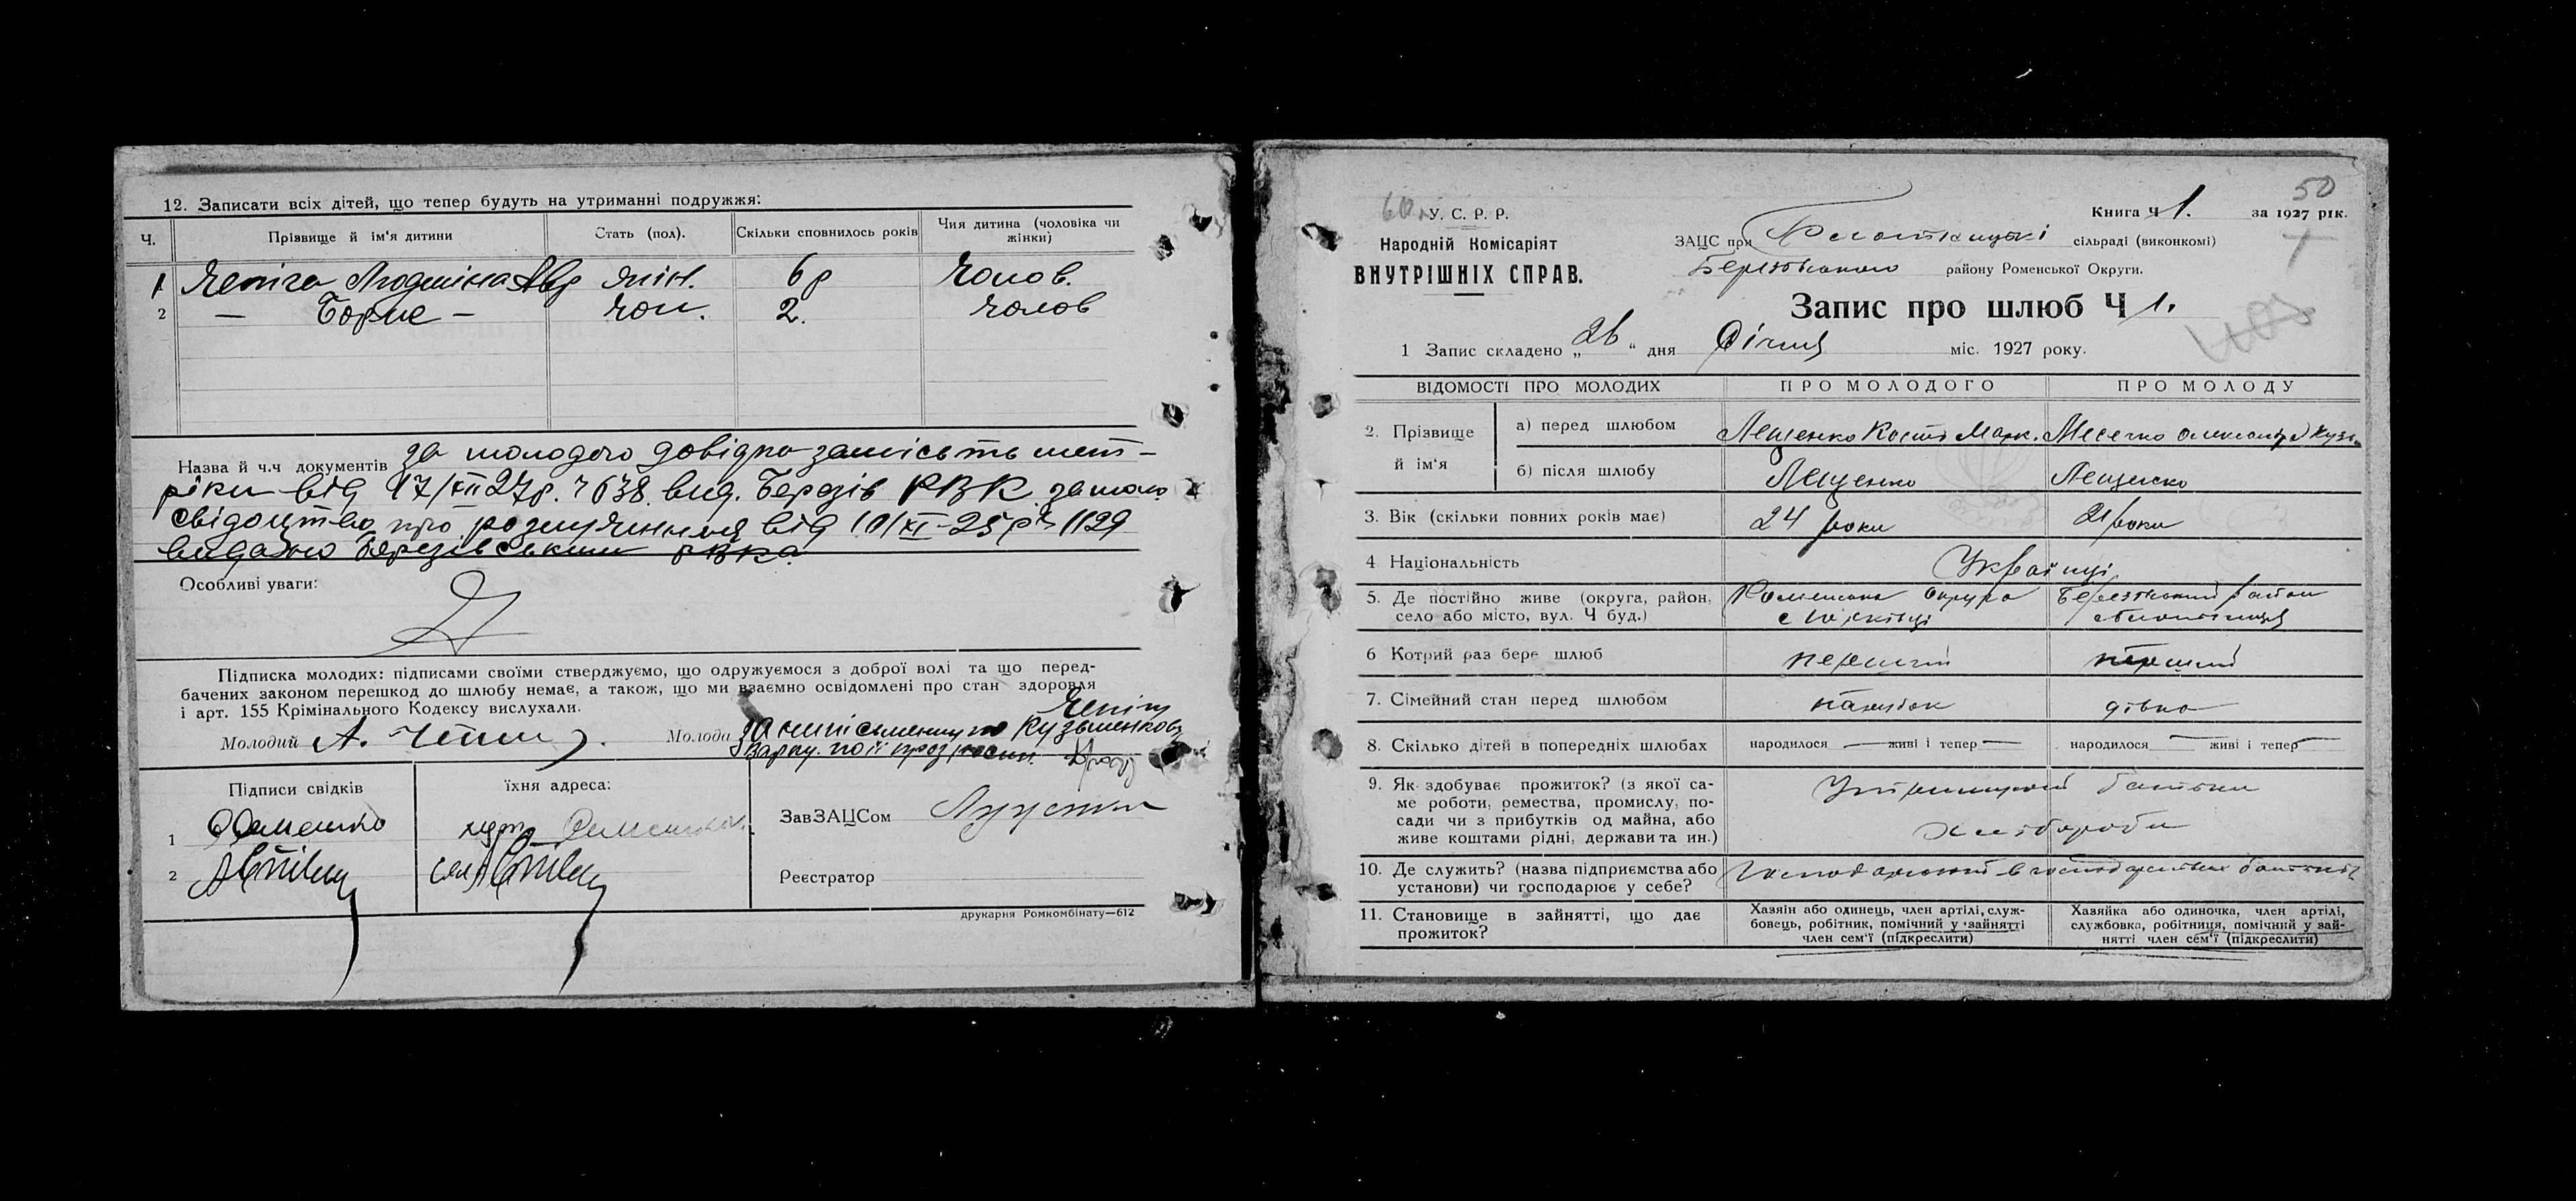 12. Записати всіх дітей, що тепер будуть на утриманні подружжя:
Ч. Прізвище й ім'я дитини Стать (пол). Скільки сповнилось років Чия дитина (чоловіка чи жінки)
1 Чепіга Людміна Авр жін. 6 р Чолов.
2 — Борис — чол. 2. чолов
Назва й ч.ч документів за молодого довідка замість мет-
ріки від 17/XII 27р. ч 638 вид. Березів РВК за мол
свідоцтво про розлучення від 10/XI-25р ч 1129
видано Березівським РВК.
Особливі уваги:
Підписка молодих: підписами своїми стверджуємо, що одружуємося з доброї волі та що перед-
бачених законом перешкод до шлюбу немає, а також, що ми взаємно освідомлені про стан здоровля
і арт. 155 Крімінального Кодексу вислухали.
Молодий А. Чепіга Молода за неписьменну Чепігу Кузьменкову
Варку. по її прозьбі
Підписи свідків їхня адреса: ЗавЗАЦСом
1
2 Реєстратор
друкарня Ромкомбінату—612
50
60
У. С. Р. Р.
Народній Комісаріят
ВНУТРІШНІХ СПРАВ.
Книга Ч 1. за 1927 рік.
ЗАЦС при сільраді (виконкомі)
Березівського району Роменської Округи.
Запис про шлюб Ч 1.
1 Запис складено „26“ дня Січня міс. 1927 року.
ВІДОМОСТІ ПРО МОЛОДИХ ПРО МОЛОДОГО ПРО МОЛОДУ
2. Прізвище й ім'я а) перед шлюбом Лещенко Кость Марк. Месечко Олександра Кузь.
б) після шлюбу Лещенко Лещенко
3. Вік (скільки повних років має) 24 роки 21 роки
4 Національність Українці
5. Де постійно живе (округа, район, Роменська Округа Березівський район
село або місто, вул. Ч буд.)
6 Котрий раз бере шлюб перший перший
7. Сімейний стан перед шлюбом парубок дівка
8. Скілько дітей в попередніх шлюбах народилося — живі і тепер — народилося — живі і тепер —
9. Як здобуває прожиток? (з якої са-
ме роботи, ремества, промислу, по-
сади чи з прибутків од майна, або
живе коштами рідні, держави та ин.)
хлібороби
10. Де служить? (назва підприємства або
установи) чи господарює у себе?
Господарюють в господарстві батьків
11. Становище в зайнятті, що дає
прожиток?
Хазяїн або одинець, член артілі, служ-
бовець, робітник, помічний у зайнятті
член сем'ї (підкреслити)
Хазяйка або одиночка, член артілі,
службовка, робітниця, помічний у зай-
нятті член сем'ї (підкреслити)